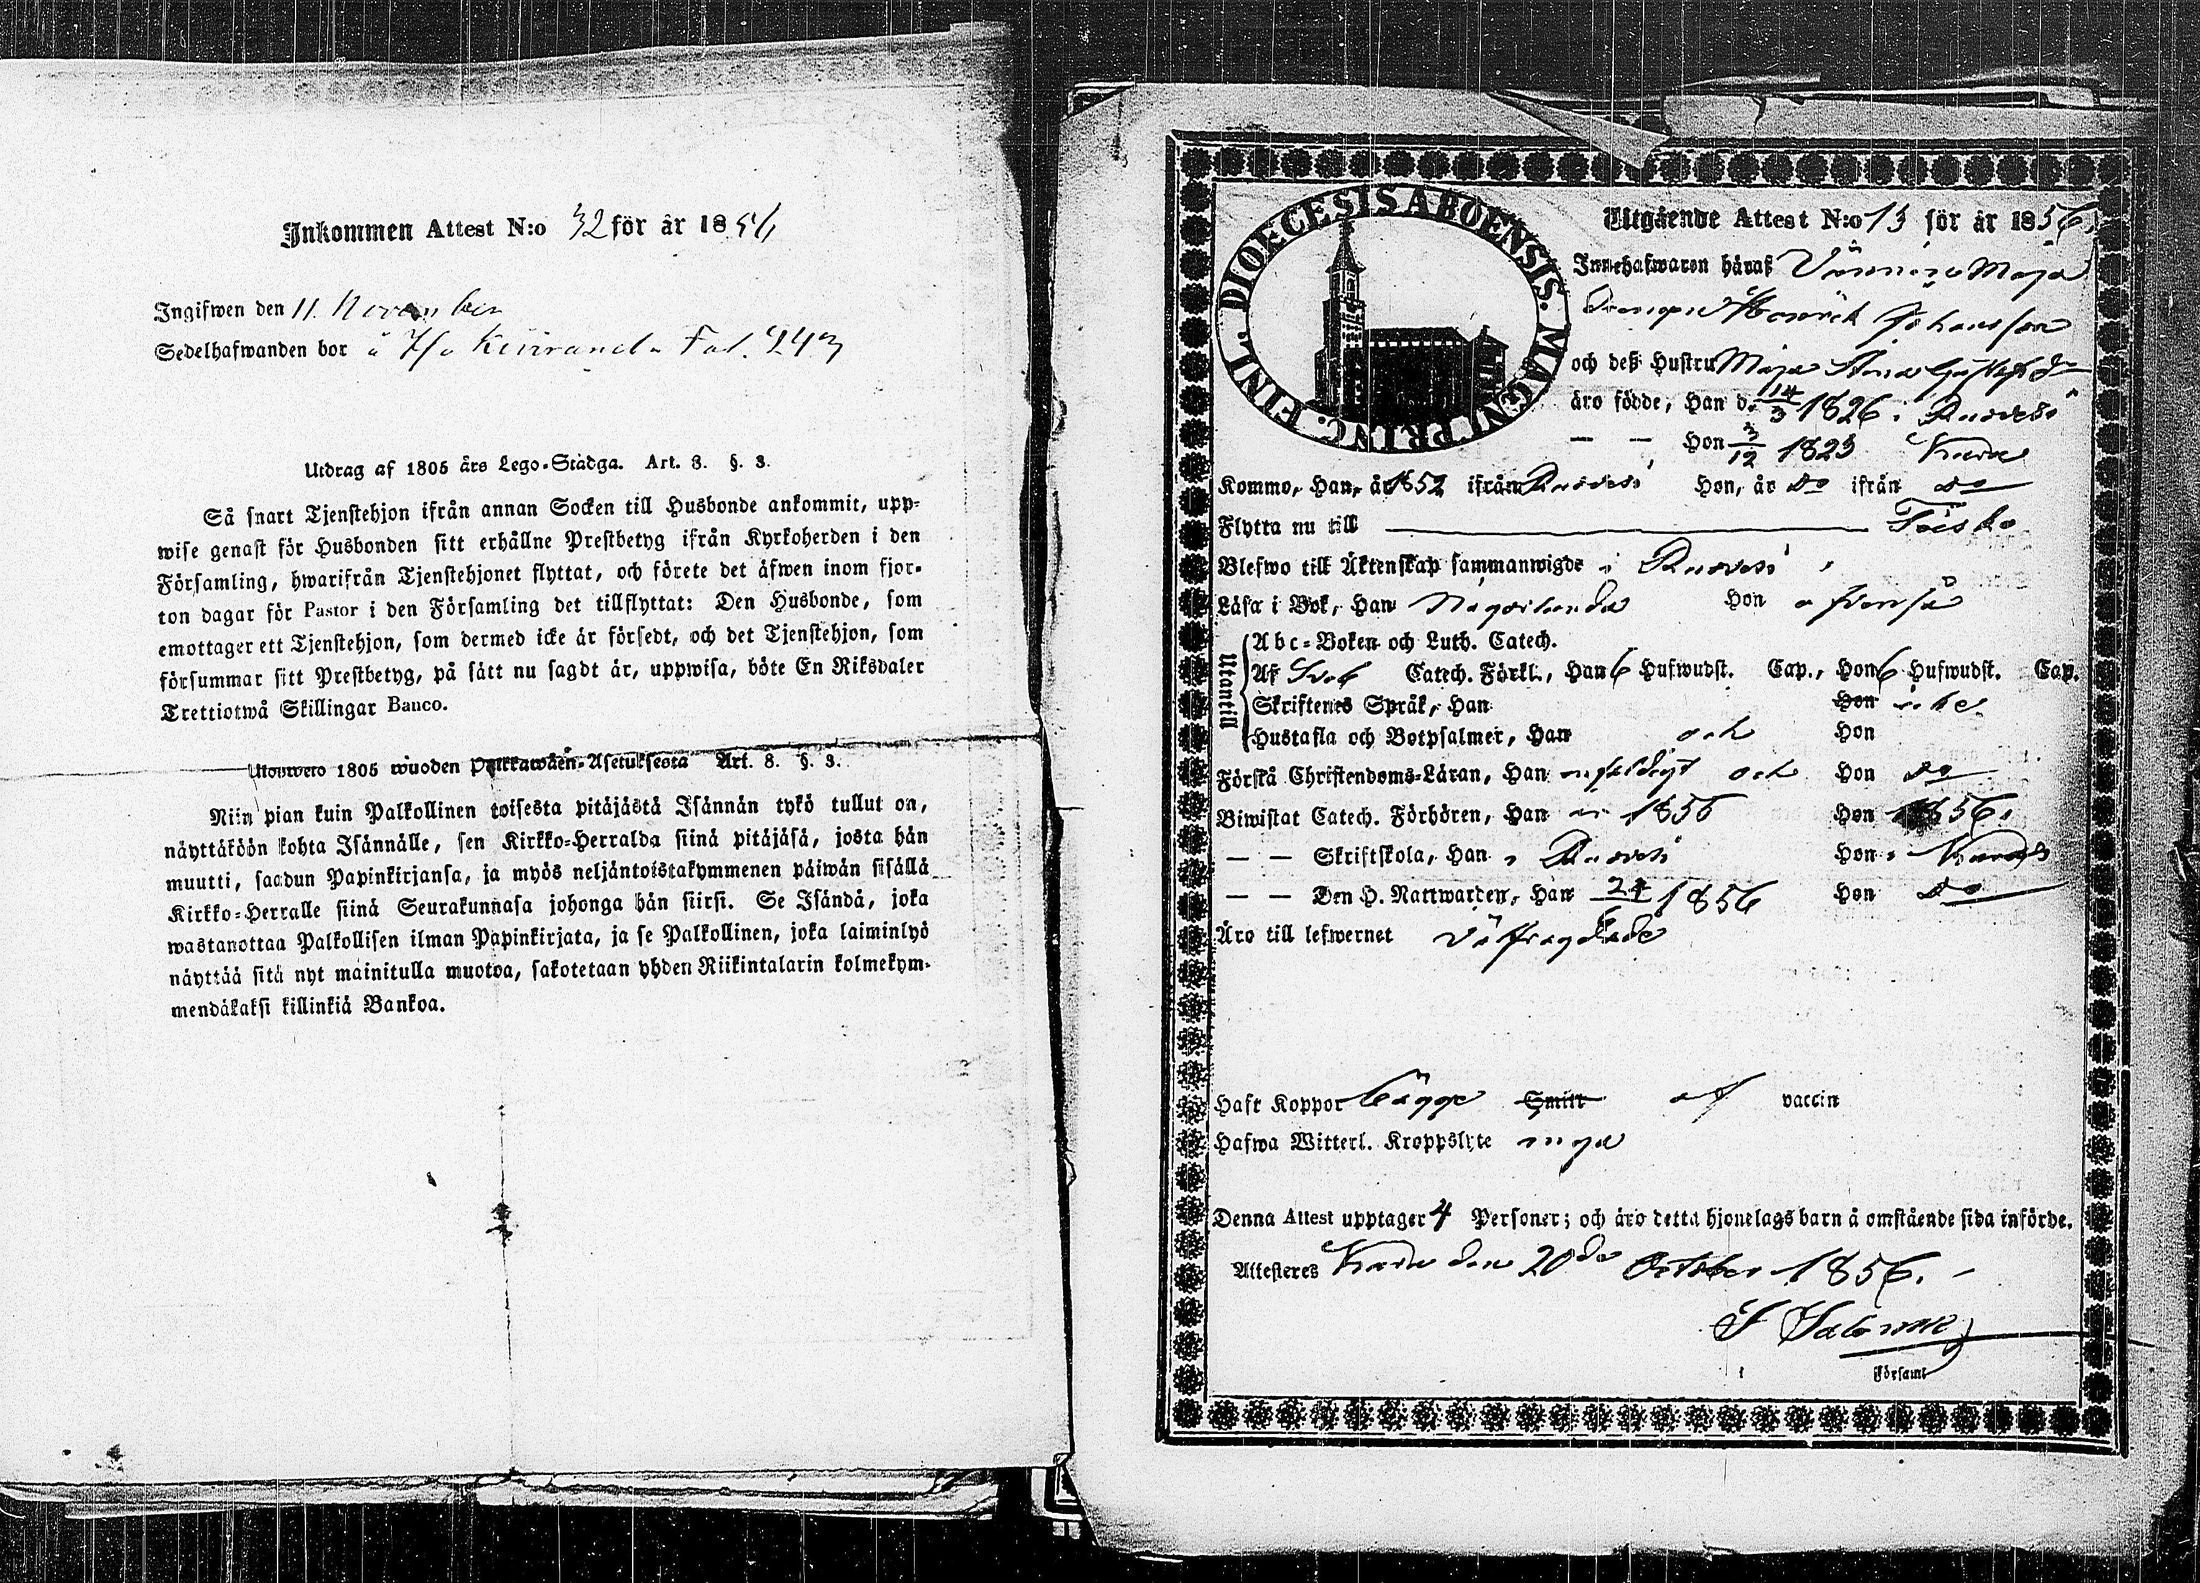 Inkommen Attest N:o 32 för år 1856
Ingifwen den 11. November
Sedelhafwanden bor å Iso Keiiranda Fol. 243
Utdrag af 1805 års Lego-Stadga. Art. 8. §. 3.
Så snart Tjenstehjon ifrån annan Socken till Husbonde ankommit, upp-
wise genast för Husbonden sitt erhållne Prestbetyg ifrån Kyrkoherden i den
Församling, hwarifrån Tjenstehjonet flyttat, och förete det äfwen inom fjor-
ton dagar för Pastor i den Församling det tillflyttat: Den Husbonde, som
emottager ett Tjenstehjon, som dermed icke är försedt, och det Tjenstehjon, som
försummar sitt Prestbetyg, på sätt nu sagdt är, uppwisa, böte En Riksdaler
Trettiotwå Skillingar Banco.
Ulosweto 1805 wuoden Palkkawäen-Asetuksesta Art. 8. §. 3.
Niin pian kuin Palkollinen toisesta pitäjästä Isännän tykö tullut on,
näyttäköön kohta Isännälle, sen Kirkko-Herralda siinä pitäjäsä, josta hän
muutti, saadun Papinkirjansa, ja myös neljäntoistakymmenen päiwän sisällä
Kirkko-Herralle siinä Seurakunnasa johonga hän siirsi. Se Isändä, joka
wastanottaa Palkollisen ilman Papinkirjata, ja se Palkollinen, joka laiminlyö
näyttää sitä nyt mainitulla muotoa, sakotetaan yhden Riikintalarin kolmekym-
mendäkaksi killinkiä Bankoa.
DIOECESIS ABOENSIS. MAGNI PRINC. FINL.
Utgående Attest N:o 13 för år 1856
Innehafwaren häraf Maja
Drengen Henrik Johansson
och deß Hustru Maja Stina Gustafsdr
äro födde, Han d. 14/3 1826 i Ruovesi
— — Hon 3/12 1823 Kuru
Kommo, Han, år 1852 ifrån Ruovesi Hon, år do ifrån do
Flytta nu till Teisko
Blefwo till Äktenskap sammanwigde i Ruovesi
Läsa i Bok, Han Någorlunda Hon äfvenså
Utantill
Abc-Boken och Luth. Catech.
Af Sveb Catech. Förkl., Han 6 Hufwudst. Cap., Hon 6 Hufwudst. Cap.
Skriftenes Språk, Han Hon icke
Hustafla och Botpsalmer, Han och Hon
Förstå Christendoms-Läran, Han enfaldigt och Hon do
Biwistat Catech. Förhören, Han år 1856 Hon 1856.
— — Skriftskola, Han i Ruovesi Hon i Kuru
— — Den H. Nattwarden, Han 24/6 1856 Hon do
Äro till lefwernet välfrägdade
Haft Koppor bägge Smitt af vaccin
Hafwa Witterl. Kroppslyte inga
Denna Attest upptager 4 Personer; och äro detta hjonelags barn å omstående sida införde.
Attesteres Kuru den 20de October 1856.
Församl